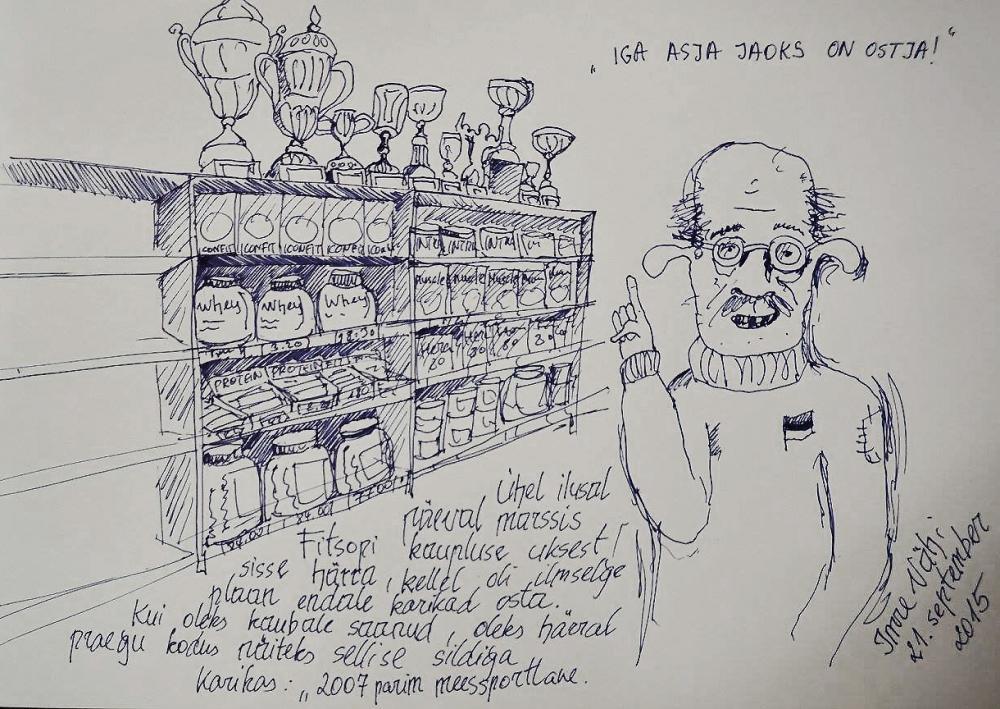 „ IGA ASJA JAOKS ON OSTJA! “
ICONFIT ICONFIT ICONFIT ICONFIT
INTRA INTRA INTRA
Muscle Muscle Muscle
Whey Whey Whey
3.20 18.30
PROTEIN PROTEIN
Ühel ilusal
päeval marssis
Fitsopi kaupluse uksest
sisse härra, kellel oli ilmselge
plaan endale karikad osta.
Kui oleks kaubale saanud, oleks härral
praegu kodus näiteks sellise sildiga
karikas: „ 2007 parim meessportlane.
21. september
2015